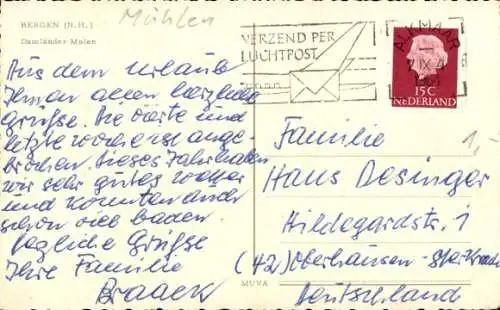 BERGEN (N.H.)
Damländer Molen
Mühlen
VERZEND PER
LUCHTPOST
ALKMAAR
15 C
NEDERLAND
1,-
Aus dem Urlaub
Ihnen allen herzliche
Grüsse. Die vierte und
letzte Woche ist ange-
brochen. Dieses Jahr haben
wir sehr gutes Wetter
und konnten auch
schon viel baden.
Herzliche Grüsse
Ihre Familie
Braack
Familie
Hans Desinger
Hildegardstr. 1
(42) Oberhausen-Sterkrade
Deutschland
MUVA